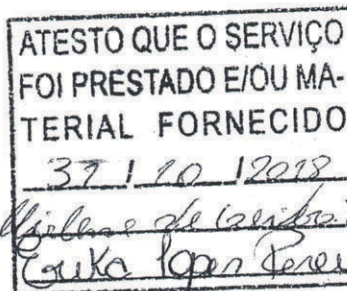 ATESTO QUE O SERVIÇO
FOI PRESTADO E/OU MA-
TERIAL FORNECIDO
31 / 10 / 2018
de
Erika Lopes